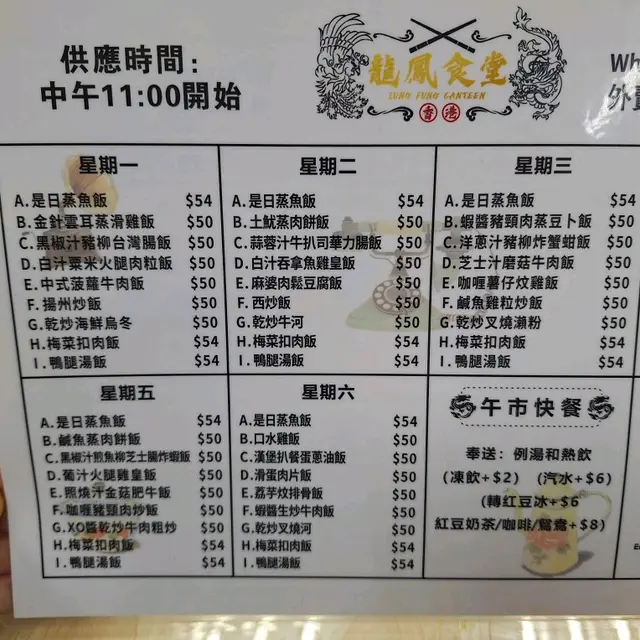 供應時間：
中午11:00開始
龍鳳食堂
LUNG FUNG CANTEEN
香港
Wh
外
星期一
A.是日蒸魚飯 $54
B.金針雲耳蒸滑雞飯 $50
C.黑椒汁豬柳台灣腸飯 $50
D.白汁粟米火腿肉粒飯 $50
E.中式菠蘿牛肉飯 $50
F.揚州炒飯 $50
G.乾炒海鮮烏冬 $50
H.梅菜扣肉飯 $54
I.鴨腿湯飯 $54
星期二
A.是日蒸魚飯 $54
B.土魷蒸肉餅飯 $50
C.蒜蓉汁牛扒司華力腸飯 $50
D.白汁吞拿魚雞皇飯 $50
E.麻婆肉鬆豆腐飯 $50
F.西炒飯 $50
G.乾炒牛河 $50
H.梅菜扣肉飯 $54
I.鴨腿湯飯 $54
星期三
A.是日蒸魚飯 $54
B.蝦醬豬頸肉蒸豆卜飯 $50
C.洋蔥汁豬柳炸蟹蚶飯 $50
D.芝士汁磨菇牛肉飯 $50
E.咖喱薯仔炆雞飯 $50
F.鹹魚雞粒炒飯 $50
G.乾炒叉燒瀨粉 $50
H.梅菜扣肉飯 $54
I.鴨腿湯飯 $54
星期五
A.是日蒸魚飯 $54
B.鹹魚蒸肉餅飯 $50
C.黑椒汁煎魚柳芝士腸炸蝦飯 $50
D.葡汁火腿雞皇飯 $50
E.照燒汁金菇肥牛飯 $50
F.咖喱豬頸肉炒飯 $50
G.XO醬乾炒牛肉粗炒 $50
H.梅菜扣肉飯 $54
I.鴨腿湯飯 $54
星期六
A.是日蒸魚飯 $54
B.口水雞飯 $50
C.漢堡扒餐蛋蔥油飯 $50
D.滑蛋肉片飯 $50
E.荔芋炆排骨飯 $50
F.蝦醬生炒牛肉飯 $50
G.乾炒叉燒河 $50
H.梅菜扣肉飯 $54
I.鴨腿湯飯 $54
午市快餐
奉送：例湯和熱飲
(凍飲+$2) (汽水+$6)
(轉紅豆冰+$6
紅豆奶茶/咖啡/鴛鴦+$8)